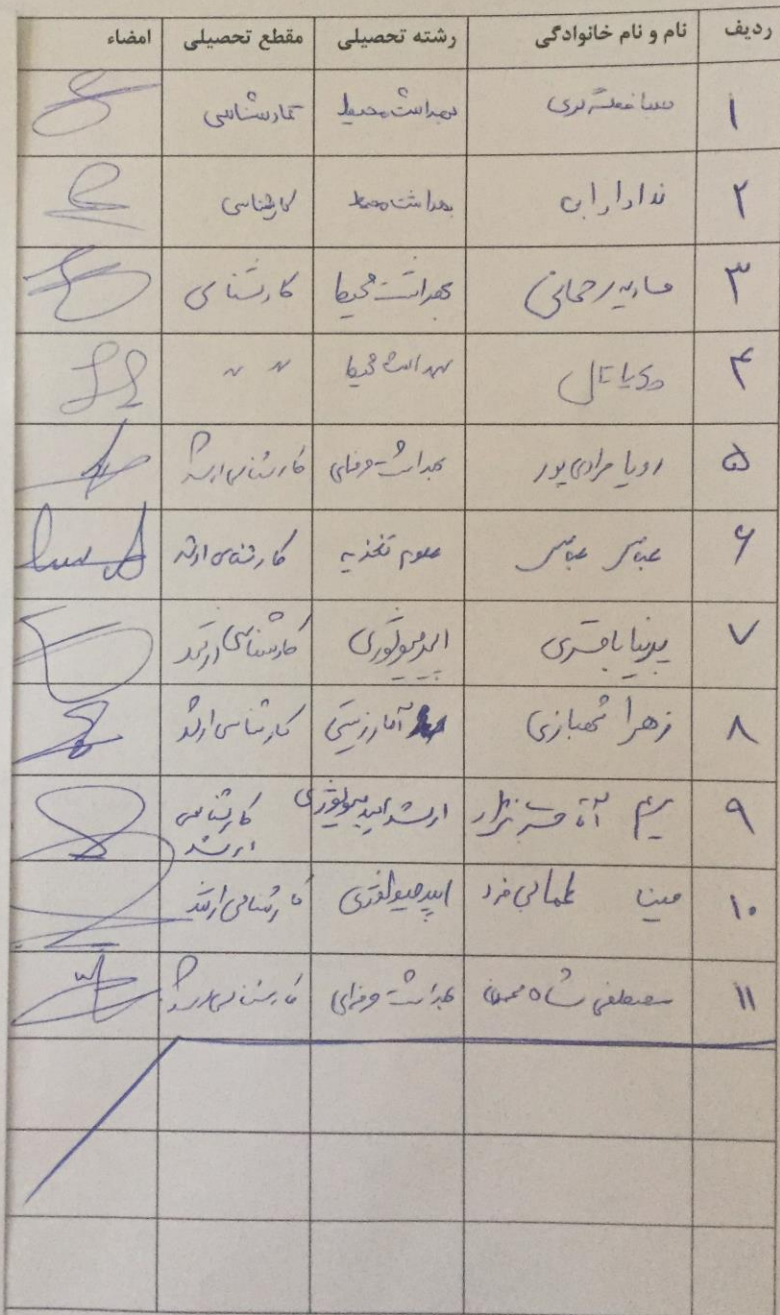 ردیف نام و نام خانوادگی رشته تحصیلی مقطع تحصیلی امضاء
۱ بهداشت محیط کارشناسی
۲ ندا دارابی بهداشت محیط کارشناسی
۳ رحمانی بهداشت محیط کارشناسی
۴ بهداشت محیط 〃 〃
۵ رویا مرادی پور بهداشت حرفه‌ای کارشناسی ارشد
۶ عباس عباسی علوم تغذیه کارشناسی ارشد
۷ اپیدمیولوژی کارشناسی ارشد
۸ زهرا شهبازی آمار زیستی کارشناسی ارشد
۹ مریم ارشد اپیدمیولوژی کارشناسی
ارشد
۱۰ مینا اپیدمیولوژی کارشناسی ارشد
۱۱ مصطفی شاه بهداشت حرفه‌ای کارشناسی ارشد